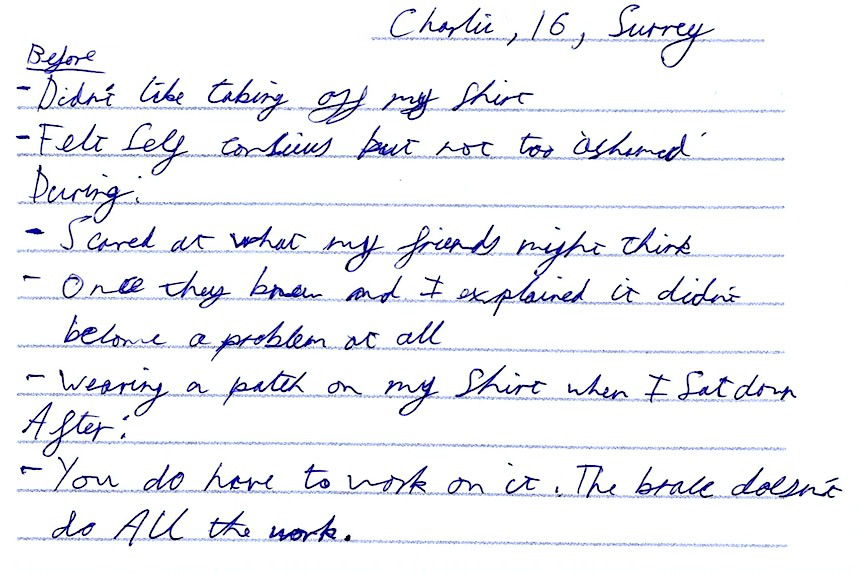 Charlie, 16, Surrey
Before
- Didn't like taking off my shirt
- Felt self consious but not too 'ashamed'
During:
- Scared at what my friends might think
- Once they knew and I explained it didn't
become a problem at all
- Wearing a patch on my shirt when I sat down
After:
- You do have to work on it. The brace doesn't
do ALL the work.